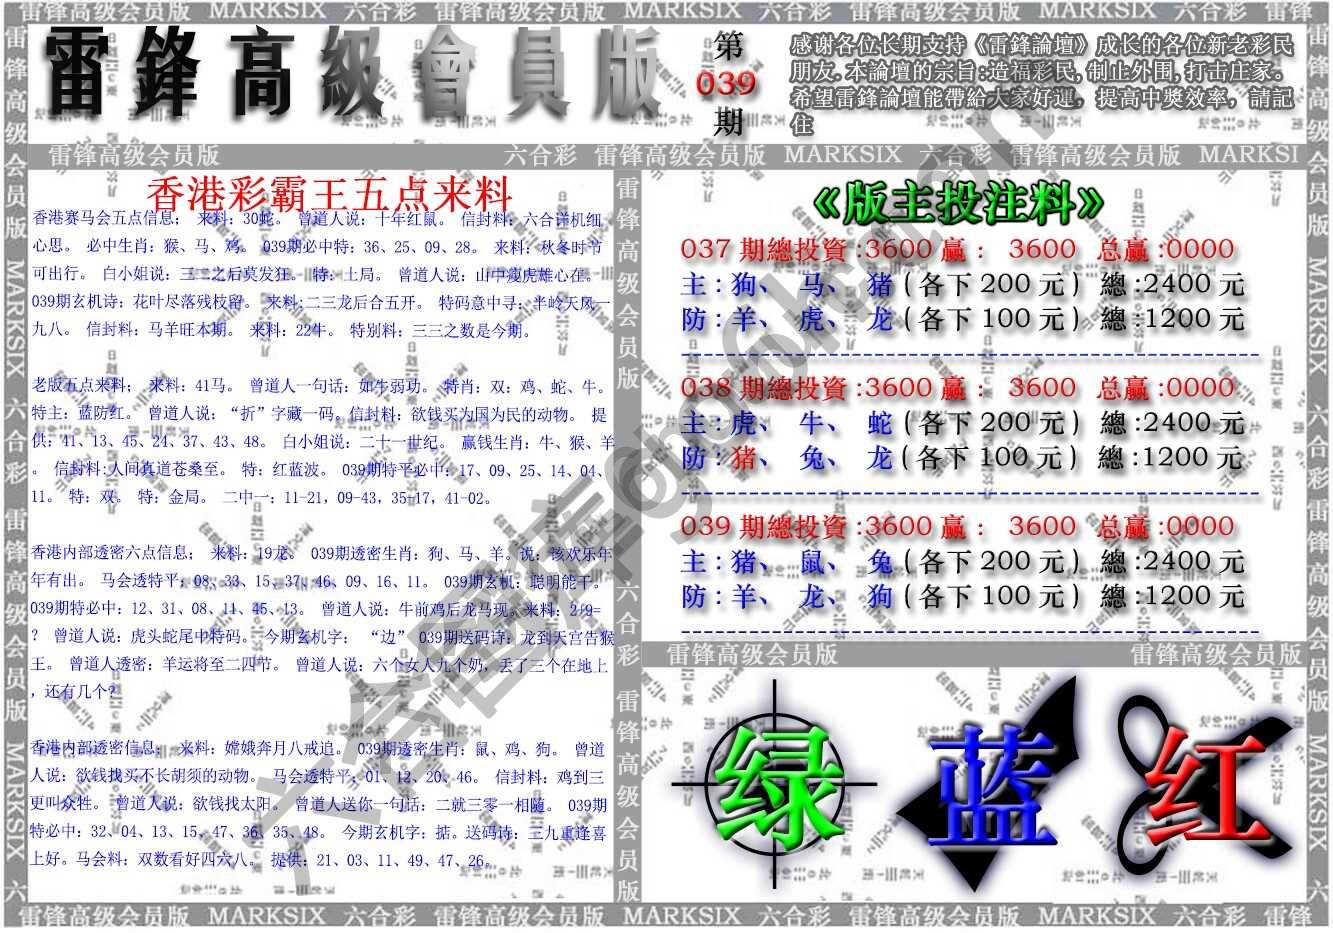 雷锋高级会员版 MARKSIX 六合彩 雷锋高级会员版 MARKSIX 六合彩 雷锋高级会员版 MARKSIX 六合彩 雷锋
雷鋒高級會員版
第
039
期
感谢各位长期支持《雷鋒論壇》成长的各位新老彩民
朋友.本論壇的宗旨:造福彩民,制止外围,打击庄家。
希望雷鋒論壇能帶給大家好運，提高中獎效率，請記
住
雷锋高级会员版
六合彩 雷锋高级会员版 MARKSIX 六合彩 雷锋高级会员版 MARKSI
香港彩霸王五点来料
香港赛马会五点信息； 来料：30蛇。 曾道人说：十年红鼠。 信封料：六合详机细
心思。 必中生肖：猴、马、鸡。 039期必中特：36、25、09、28。 来料：秋冬时节
可出行。 白小姐说：三二之后莫发狂。 特：土局。 曾道人说：山中瘦虎雄心在。
039期玄机诗：花叶尽落残枝留。 来料:二三龙后合五开。 特码意中寻：半岭天凤一
九八。 信封料：马羊旺本期。 来料：22牛。 特别料：三三之数是今期。
老版五点来料； 来料：41马。 曾道人一句话：如牛弱功。 特肖：双：鸡、蛇、牛。
特主：蓝防红。 曾道人说：“折”字藏一码。信封料：欲钱买为国为民的动物。 提
供：41、13、45、24、37、43、48。 白小姐说：二十一世纪。 赢钱生肖：牛、猴、羊
。 信封料:人间真道苍桑至。 特：红蓝波。 039期特平必中：17、09、25、14、04、
11。 特：双。 特：金局。 二中一：11-21，09-43，35-17，41-02。
香港内部透密六点信息； 来料：19龙。 039期透密生肖：狗、马、羊。说：该欢乐年
年有出。 马会透特平：08、33、15、37、46、09、16、11。 039期玄机：聪明能干。
039期特必中：12、31、08、11、45、13。 曾道人说：牛前鸡后龙马现。来料：2/9=
？ 曾道人说：虎头蛇尾中特码。 今期玄机字； “边” 039期送码诗：龙到天宫告猴
王。 曾道人透密：羊运将至二四节。 曾道人说：六个女人九个奶，丢了三个在地上
，还有几个?
香港内部透密信息； 来料：嫦娥奔月八戒追。 039期透密生肖：鼠、鸡、狗。 曾道
人说：欲钱找买不长胡须的动物。 马会透特平：01、12、20、46。 信封料：鸡到三
更叫众牲。 曾道人说：欲钱找太阳。 曾道人送你一句话：二就三零一相随。 039期
特必中：32、04、13、15、47、36、35、48。 今期玄机字：掂。送码诗：三九重逢喜
上好。马会料：双数看好四六八。 提供：21、03、11、49、47、26。
《版主投注料》
037 期總投資 :3600 赢： 3600 总赢 :0000
主：狗、 马、 猪 ( 各下 200 元 ) 總 :2400 元
防：羊、 虎、 龙 ( 各下 100 元 ) 總 :1200 元
038 期總投資 :3600 赢： 3600 总赢 :0000
主：虎、 牛、 蛇 ( 各下 200 元 ) 總 :2400 元
防：猪、 兔、 龙 ( 各下 100 元 ) 總 :1200 元
039 期總投資 :3600 赢： 3600 总赢 :0000
主：猪、 鼠、 兔 ( 各下 200 元 ) 總 :2400 元
防：羊、 龙、 狗 ( 各下 100 元 ) 總 :1200 元
雷锋高级会员版
雷锋高级会员版
绿 蓝 红
雷锋高级会员版 MARKSIX 六合彩 雷锋高级会员版 MARKSIX 六合彩 雷锋高级会员版 MARKSIX 六合彩 雷锋